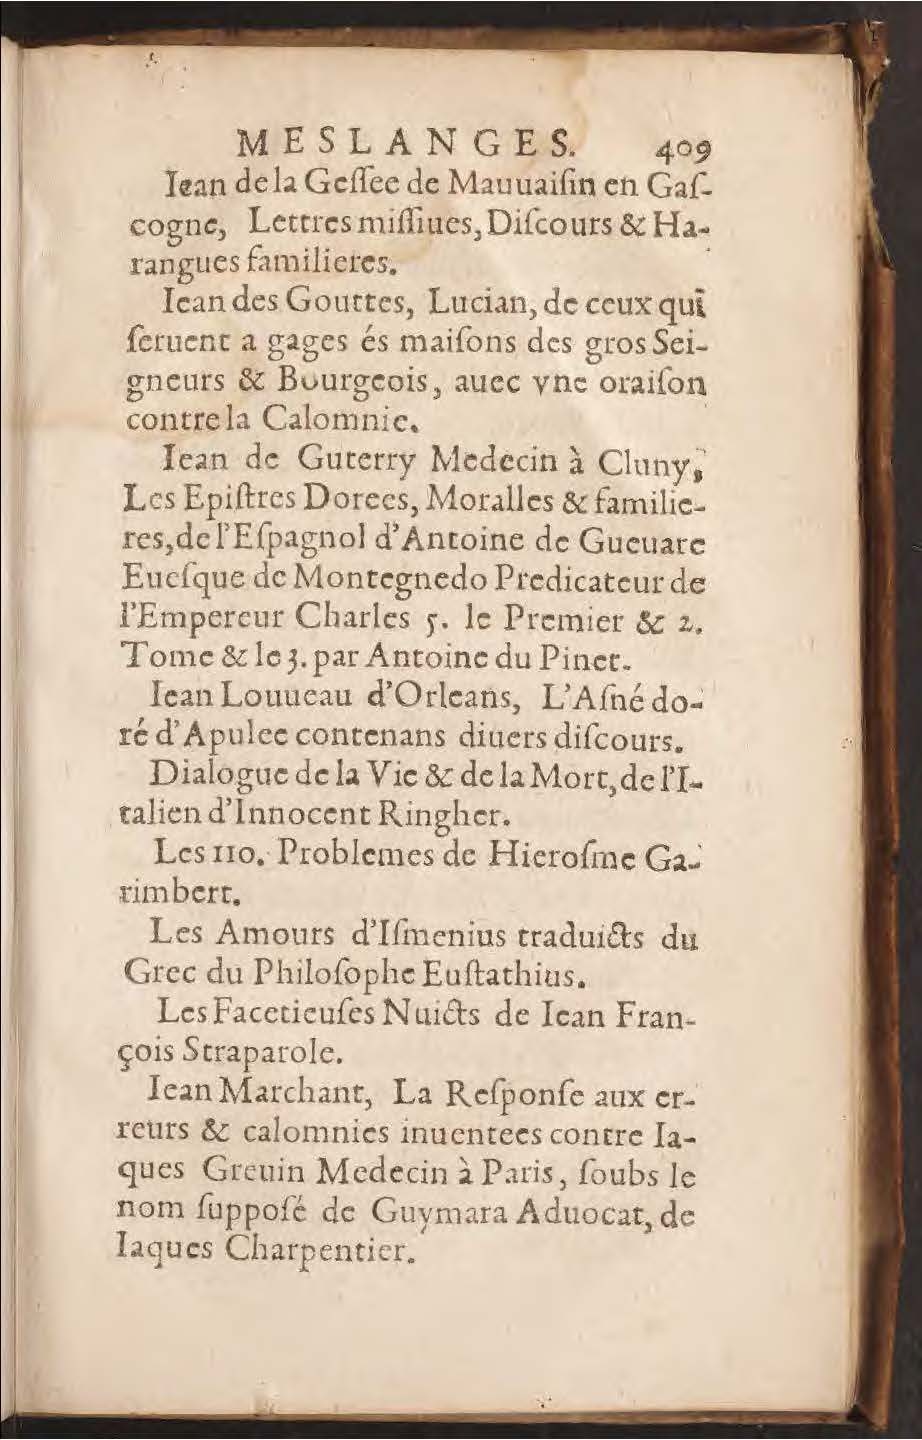 MESLANGES. 409
Iean de la Gessee de Mauuaiſin en Gaſ-
cogne, Lettres miſſiues, Diſcours & Ha-
rangues familieres.
Iean des Gouttes, Lucian, de ceux qui
ſeruent a gages és maiſons des gros Sei-
gneurs & Bourgeois, auec vne oraiſon
contre la Calomnie.
Iean de Guterry Medecin à Cluny,
Les Epiſtres Dorees, Moralles & familie-
res, de l'Eſpagnol d'Antoine de Gueuare
Eueſque de Montegnedo Predicateur de
l'Empereur Charles 5. le Premier & 2.
Tome & le 3. par Antoine du Pinet.
Iean Louueau d'Orleans, L'Aſné do-
ré d'Apulee contenans diuers diſcours.
Dialogue de la Vie & de la Mort, de l'I-
talien d'Innocent Ringher.
Les 110. Problemes de Hieroſme Ga-
rimbert.
Les Amours d'Iſmenius traduicts du
Grec du Philoſophe Euſtathius.
Les Facetieuſes Nuicts de Iean Fran-
çois Straparole.
Iean Marchant, La Reſponſe aux er-
reurs & calomnies inuentees contre Ia-
ques Greuin Medecin à Paris, ſoubs le
nom ſuppoſé de Guymara Aduocat, de
Iaques Charpentier.